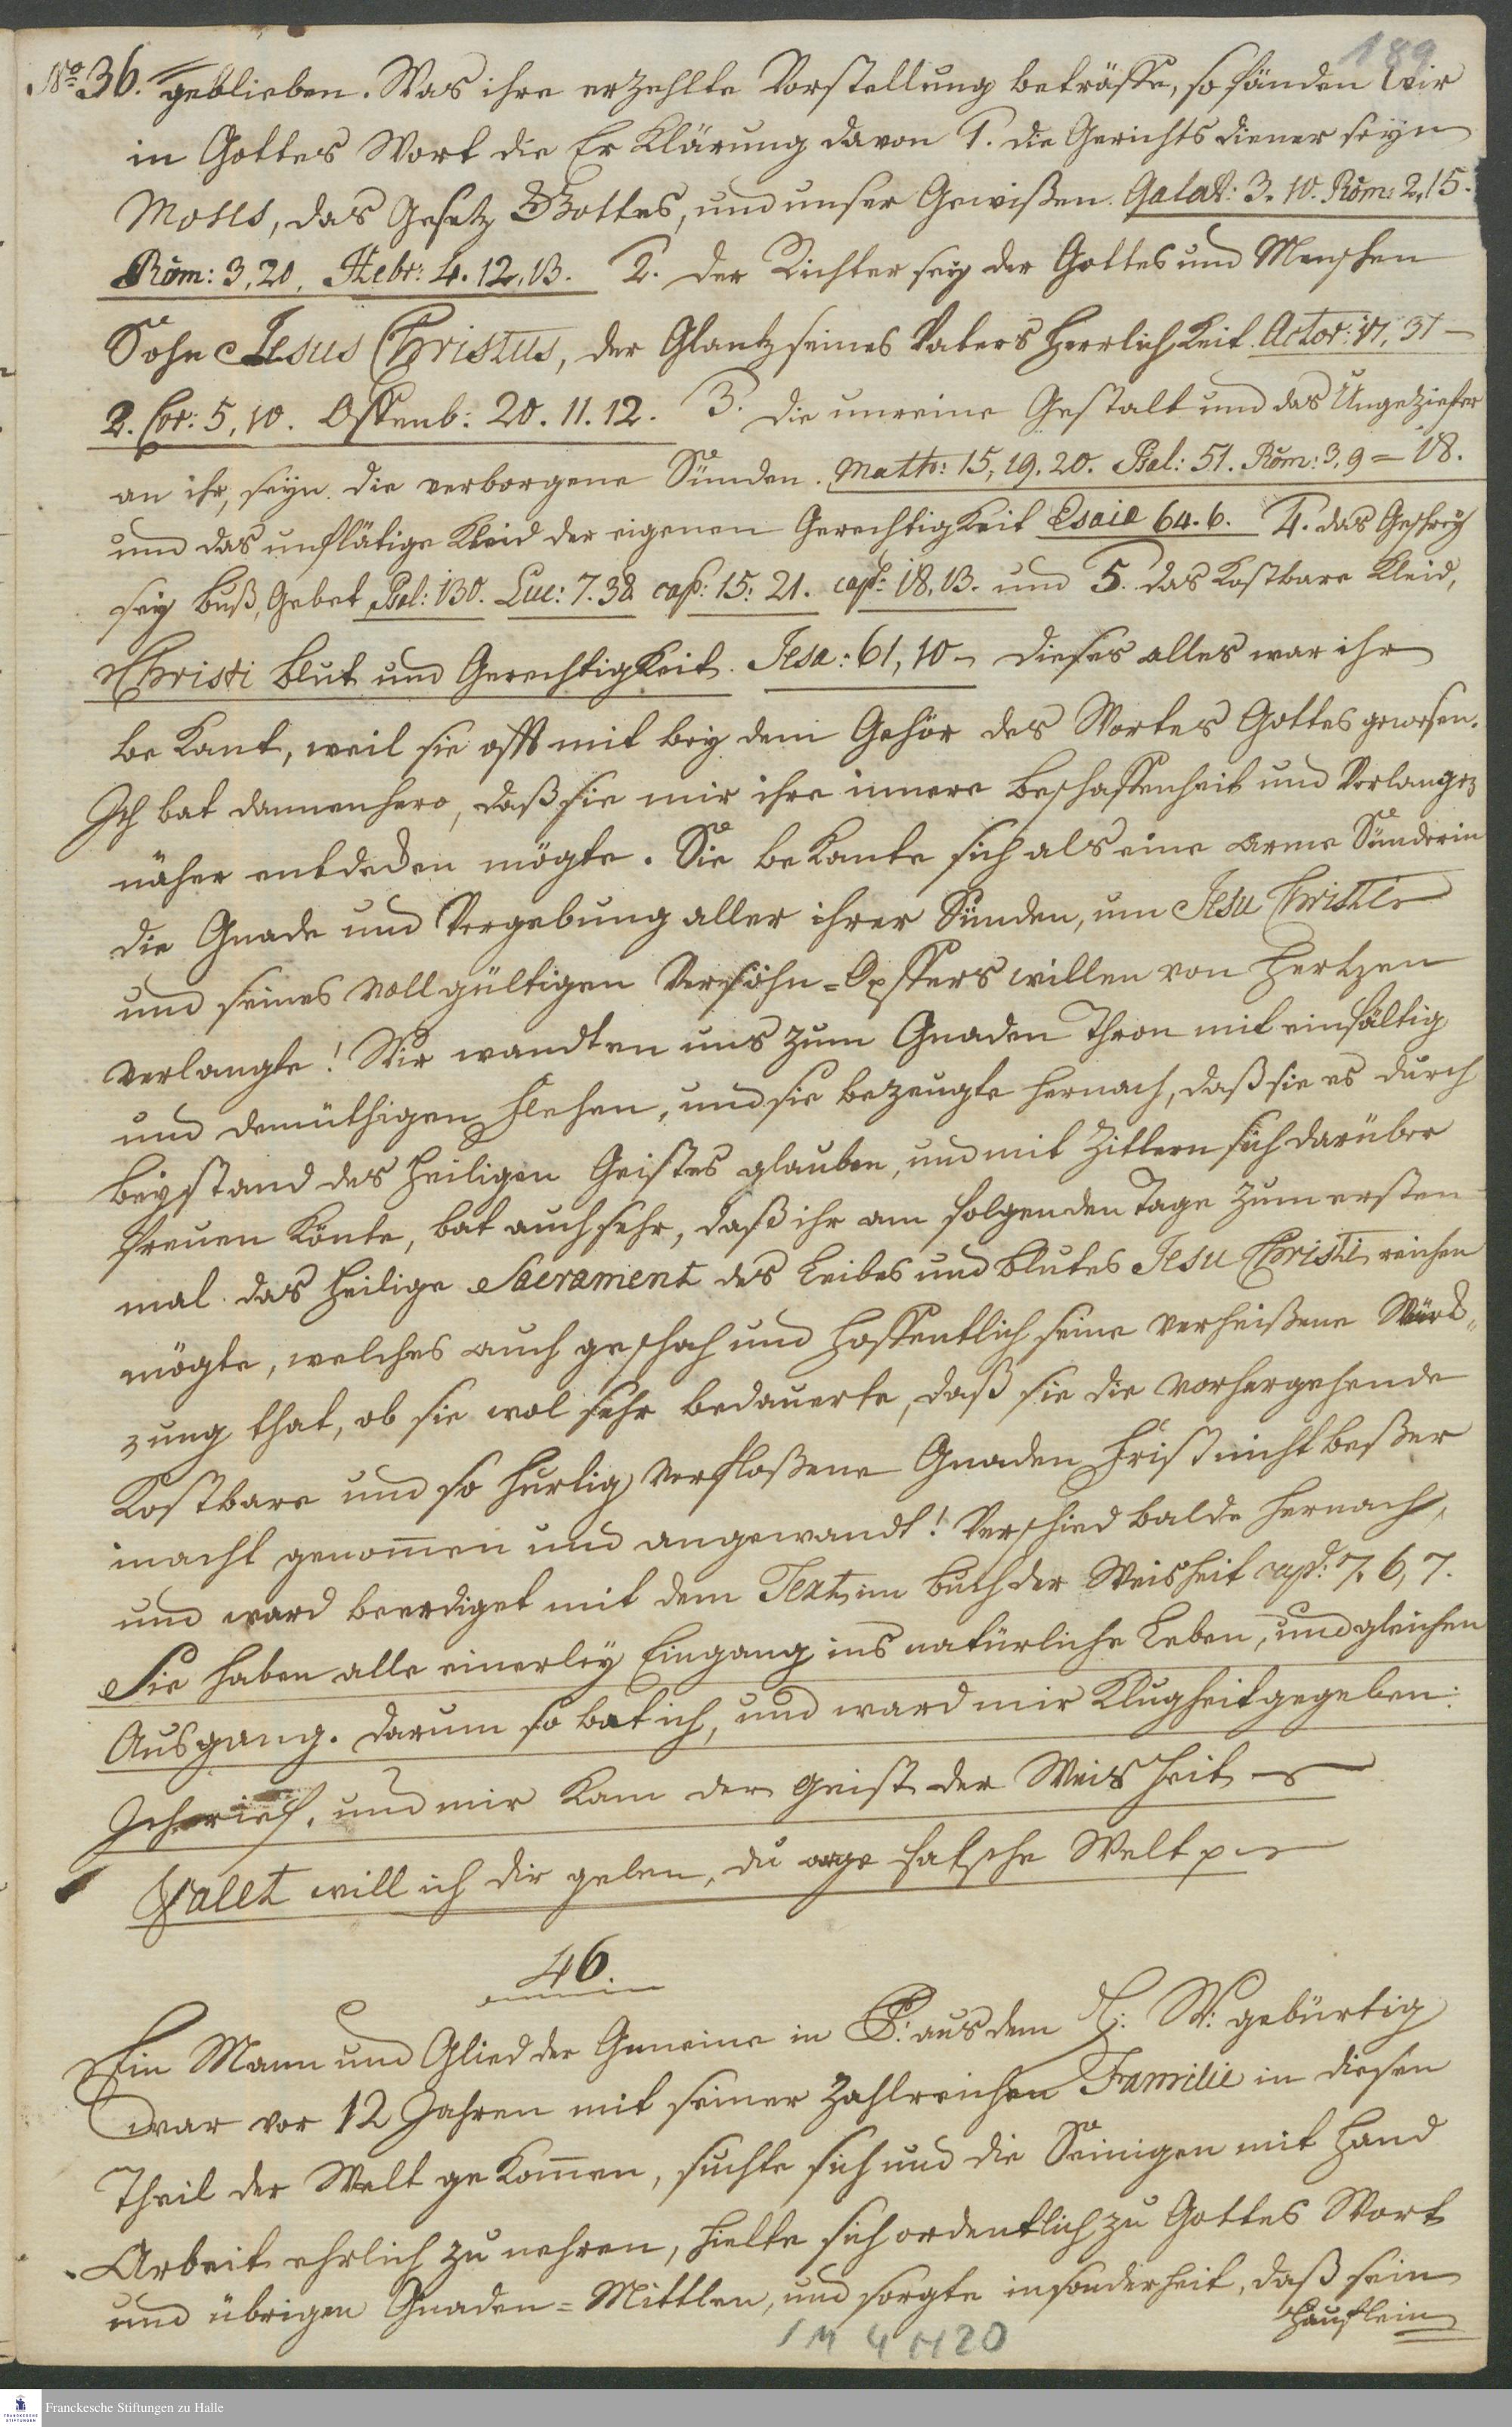 189
No 36. geblieben. Was ihre erzehlte Vorstellung beträffe, so fänden wir
in Gottes Wort die Erklärung davon 1. die Gerichtsdiener seyn
Moses, das Gesetz Gottes, und unser Gewißen. Galat: 3. 10. Röm: 2,15.
Röm: 3,20. Hebr: 4. 12,13. 2. der Richter sey der Gottes und Menschen
Sohn Jesus Christus, der Glantz seines Vaters Herrlichkeit. Actor: 17, 31 –
2. Cor: 5, 10. Offenb: 20. 11. 12. 3. die unreine Gestalt und das Ungeziefer
an ihr, seyn die verborgene Sünden. Matth: 15, 19. 20. Psal: 51. Röm: 3, 9 = 18.
und das unflätige Kleid der eigenen Gerechtigkeit Esaia 64. 6. 4. das Geschrey
sey Buß, Gebet Psal: 130. Luc: 7. 38. cap: 15: 21. cap: 18, 13. und 5. das kostbare Kleid,
Christi Blut und Gerechtigkeit. Jesa: 61, 10 – dieses alles war ihr
bekant, weil sie offt mit bey dem Gehör des Wortes Gottes gewesen.
Ich bat dannenhero, daß sie mir ihre innere Beschaffenheit und Verlangen
näher entdecken mögte. Sie bekante sich als eine arme Sünderin
die Gnade und Vergebung aller ihrer Sünden, um Jesu Christi
und seines vollgültigen Versöhn=Opffers willen von Hertzen
verlangte! Wir wandten uns zum Gnaden Thron mit einfältig
und demüthigen Flehen, und sie bezeugte hernach, daß sie es durch
Beystand des Heiligen Geistes glauben, und mit Zittern sich darüber
freuen könte, bat auch sehr, daß ihr am folgenden Tage zum ersten
mal das Heilige Sacrament des Leibes und Blutes Jesu Christi reichen
mögte, welches auch geschah und hoffentlich seine verheißene Würck„
zung that, ob sie wol sehr bedauerte, daß sie die vorhergehende
kostbare und so hurtig verfloßene Gnaden Frist nicht beßer
in acht genommen und angewandt! Verschied balde hernach,
und ward beerdiget mit dem Text im Buch der Weisheit cap: 7. 6, 7.
Sie haben alle einerley Eingang ins natürliche Leben, und gleichen
Ausgang. darum so bat ich, und ward mir Klugheit gegeben:
Ich rief, und mir kam der Geist der Weisheit –
Valet will ich dir geben, du arge falsche Welt p –
46.
Ein Mann und Glied der Gemeine in aus dem H: W: gebürtig
war vor 12 Jahren mit seiner zahlreichen Familie in diesen
Theil der Welt gekommen, suchte sich und die Seinigen mit Hand
Arbeit ehrlich zu nehren, hielte sich ordentlich zu Gottes Wort
und übrigen Gnaden=Mittlen, und sorgte insonderheit, daß sein
Häuflein
1 M 4 H 20
Franckesche Stiftungen zu Halle